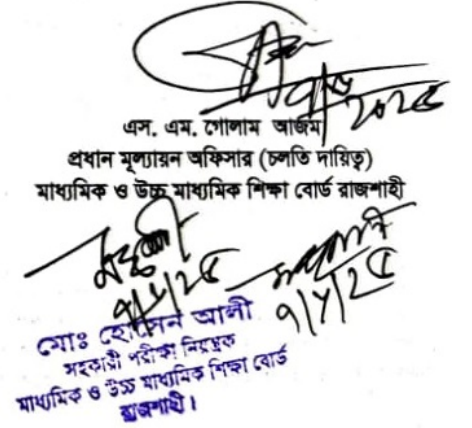 ২০২৫
এস. এম. গোলাম আজম
প্রধান মূল্যায়ন অফিসার (চলতি দায়িত্ব)
মাধ্যমিক ও উচ্চ মাধ্যমিক শিক্ষা বোর্ড রাজশাহী
মোঃ হোসেন আলী
সহকারী পরীক্ষা নিয়ন্ত্রক
মাধ্যমিক ও উচ্চ মাধ্যমিক শিক্ষা বোর্ড
রাজশাহী।